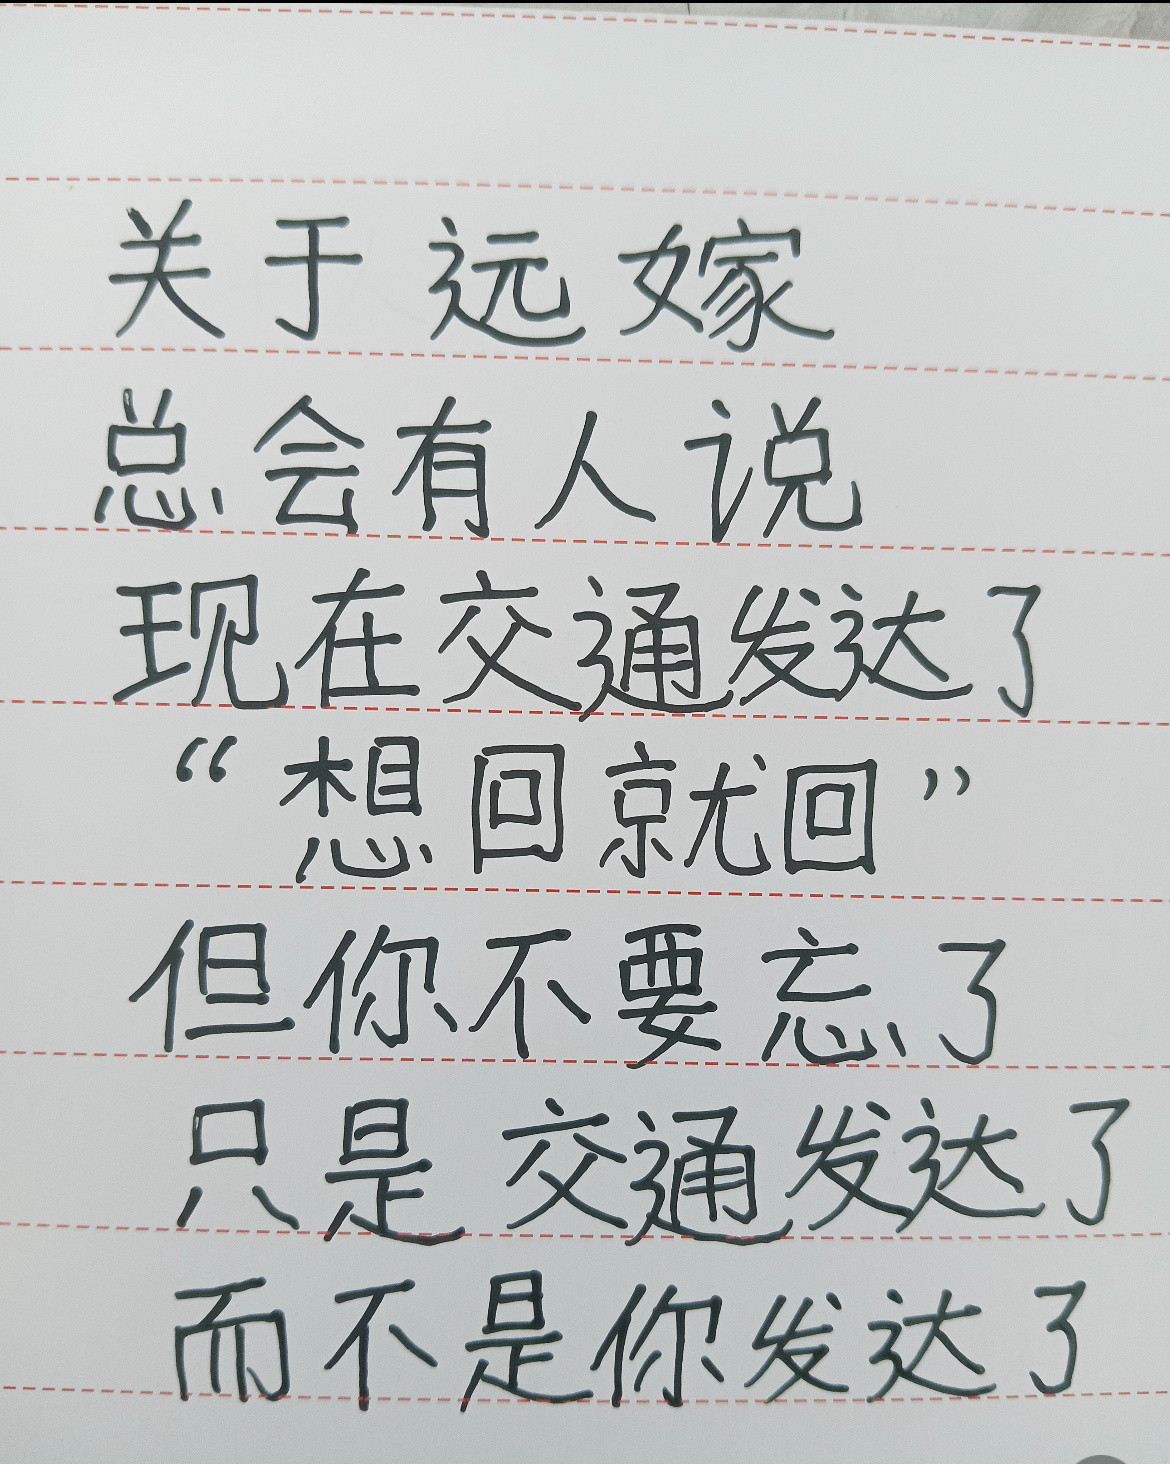 关于远嫁
总会有人说
现在交通发达了
“想回就回”
但你不要忘了
只是交通发达了
而不是你发达了